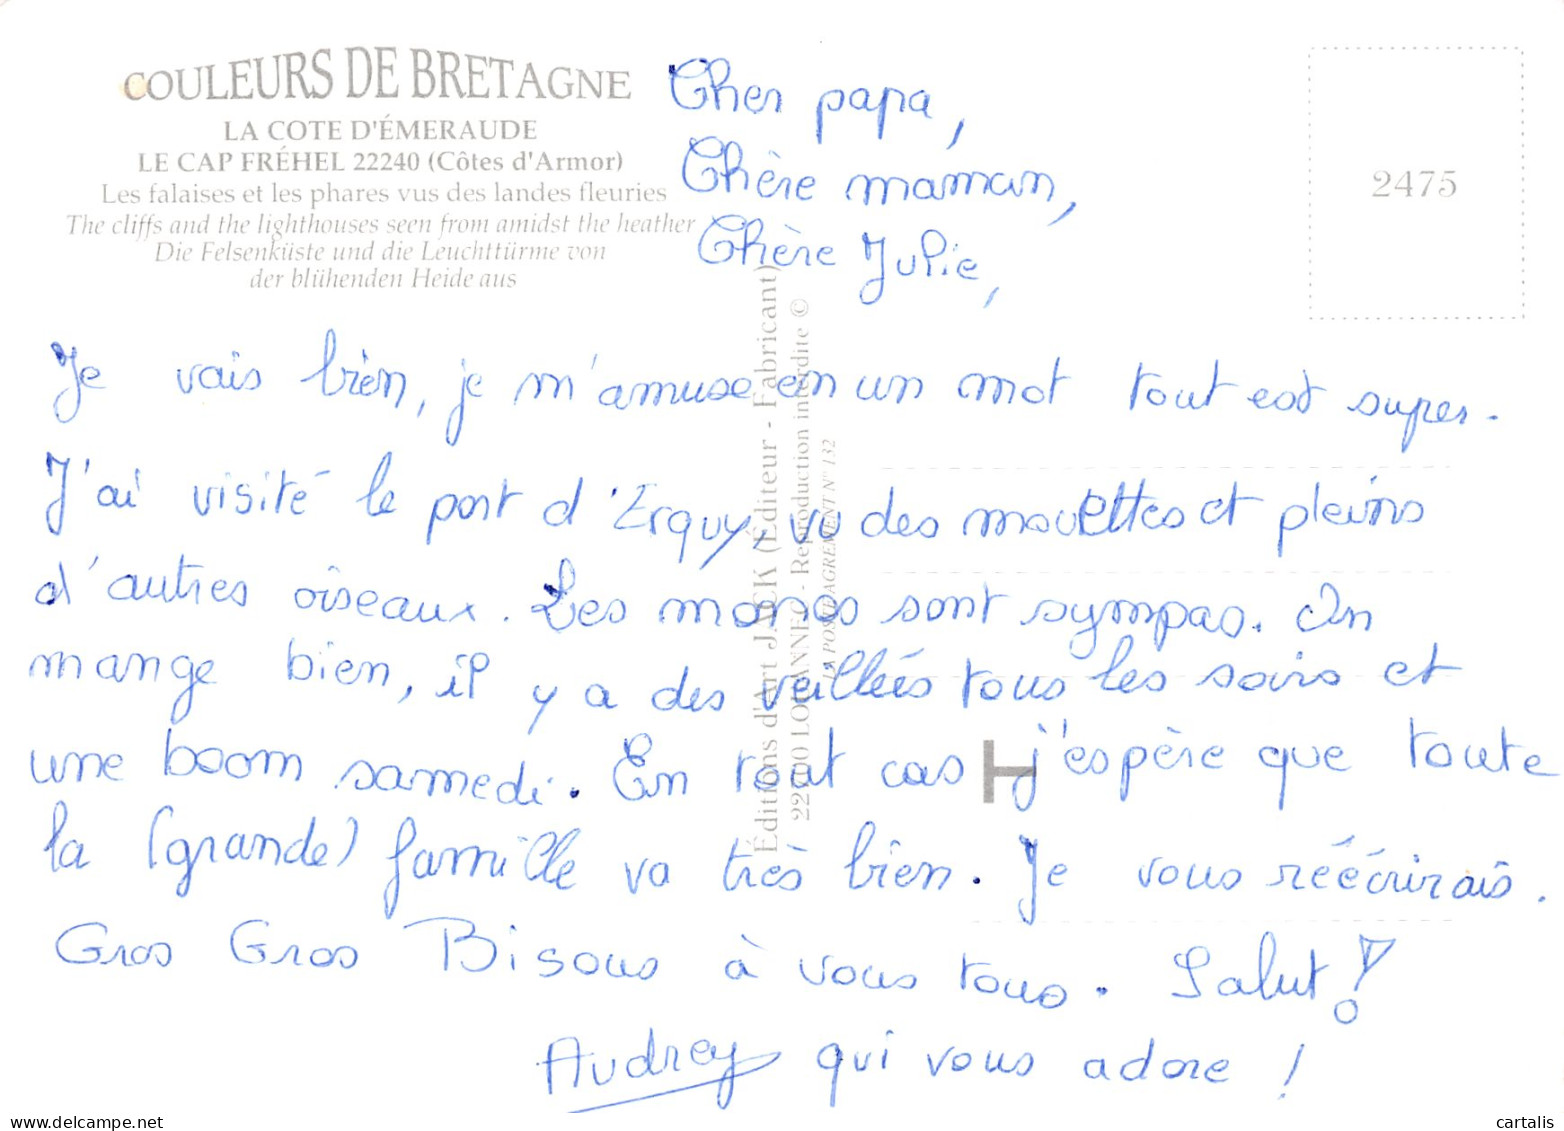 COULEURS DE BRETAGNE
LA COTE D'ÉMERAUDE
LE CAP FRÉHEL 22240 (Côtes d'Armor)
Les falaises et les phares vus des landes fleuries
The cliffs and the lighthouses seen from amidst the heather
Die Felsenküste und die Leuchttürme von
der blühenden Heide aus
2475
Cher papa,
Chère maman,
Chère Julie,
Je vais bien, je m'amuse en un mot tout est super.
J'ai visité le port d'Erquy, vu des mouettes et pleins
d'autres oiseaux. Les monos sont sympas. On
mange bien, il y a des veillées tous les soirs et
une boom samedi. En tout cas j'espère que toute
la (grande) famille va très bien. Je vous réécrirais.
Gros Gros Bisous à vous tous. Salut !
Audrey qui vous adore !
Éditions d'Art JACK (Éditeur - Fabricant)
22700 LOUANNEC - Reproduction interdite ©
LA POSTE AGRÉMENT N° 132
www.delcampe.net
cartalis